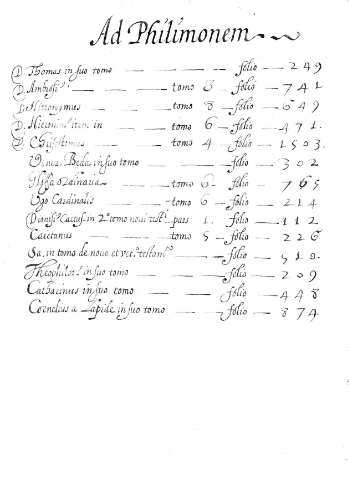 Ad Philimonem
D. Thomas in suo tomo folio 249
D. Ambros.s tomo 3 folio 741
D. Hieronymus tomo 8 folio 649
D. Hieronim. item in tomo 6 folio 471.
D. Chrysostomus tomo 4 folio 1503.
Vener. Beda in suo tomo folio 302
tomo 6 folio 765
Ugo Cardinalis tomo 6 folio 214
Dionis.s Cartus. in 2.o tomo noui test.i pars 1. folio 112
Caietanus tomo 5 folio 226
Sa, in tomo de nouo et vet.o testam.o folio 510.
Theophilat.s in suo tomo folio 209
Catharinus in suo tomo folio 448
Cornelius a Lapide in suo tomo folio 874